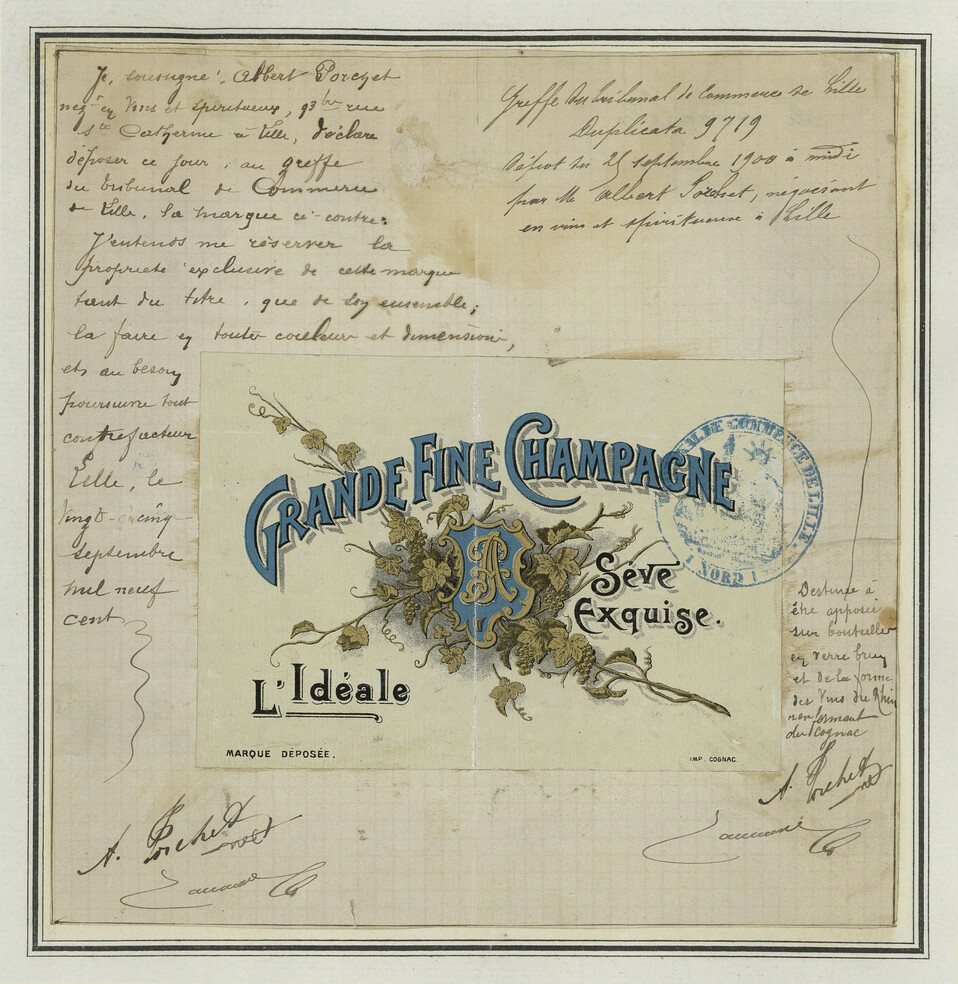 Je, soussigné, Albert Porchet
négt en Vins et spiritueux, 93 bis rue
Ste Catherine à Lille, déclare
déposer ce jour, au greffe
du tribunal de Commerce
de Lille, la marque ci-contre:
J'entends me réserver la
propriété exclusive de cette marque
tant du titre, que de son ensemble;
la faire en toutes couleurs et dimensions,
et, au besoin
poursuivre tout
contrefacteur
Lille, le
Vingt-cinq
septembre
mil neuf
cent
Greffe du tribunal de Commerce de Lille
Duplicata 9719
Dépôt du 25 septembre 1900 à midi
par M. Albert Porchet, négociant
en vins et spiritueux à Lille
GRANDE FINE CHAMPAGNE
Séve
Exquise.
L'Idéale
MARQUE DÉPOSÉE.
IMP. COGNAC
DE COMMERCE DE LILLE
NORD
Destinée à
être apposée
sur bouteilles
en verre brun
et de la forme
des Vins du Rhin
renfermant
du Cognac
A. Porchet
A. Porchet